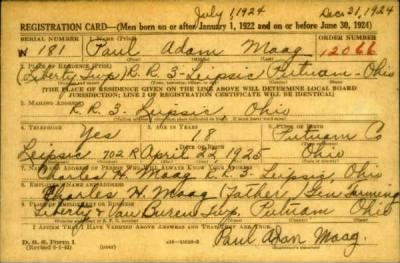 July 1, 1924 Dec 31, 1924
REGISTRATION CARD—(Men born on or after January 1, 1922 and on or before June 30, 1924)
SERIAL NUMBER 1. NAME (Print) ORDER NUMBER
W 181 Paul Adam Maag 12066
2. PLACE OF RESIDENCE (Print)
(Liberty Twp) R. R. 3- Leipsic Putnam - Ohio
[THE PLACE OF RESIDENCE GIVEN ON THE LINE ABOVE WILL DETERMINE LOCAL BOARD
JURISDICTION; LINE 2 OF REGISTRATION CERTIFICATE WILL BE IDENTICAL]
3. MAILING ADDRESS
R. R. 3. Leipsic, Ohio
4. TELEPHONE 5. AGE IN YEARS 6. PLACE OF BIRTH
Yes 18 Putnam Co
DATE OF BIRTH
Leipsic 702 R April 22, 1925 Ohio
7. NAME AND ADDRESS OF PERSON WHO WILL ALWAYS KNOW YOUR ADDRESS
Charles H. Maag R. 3 Leipsic, Ohio
8. EMPLOYER'S NAME AND ADDRESS
Charles H. Maag (Father) Gen Farming
9. PLACE OF EMPLOYMENT OR BUSINESS
Liberty & Van Buren Twp. Putnam Ohio
I AFFIRM THAT I HAVE VERIFIED ABOVE ANSWERS AND THAT THEY ARE TRUE.
D. S. S. Form 1
Paul Adam Maag.